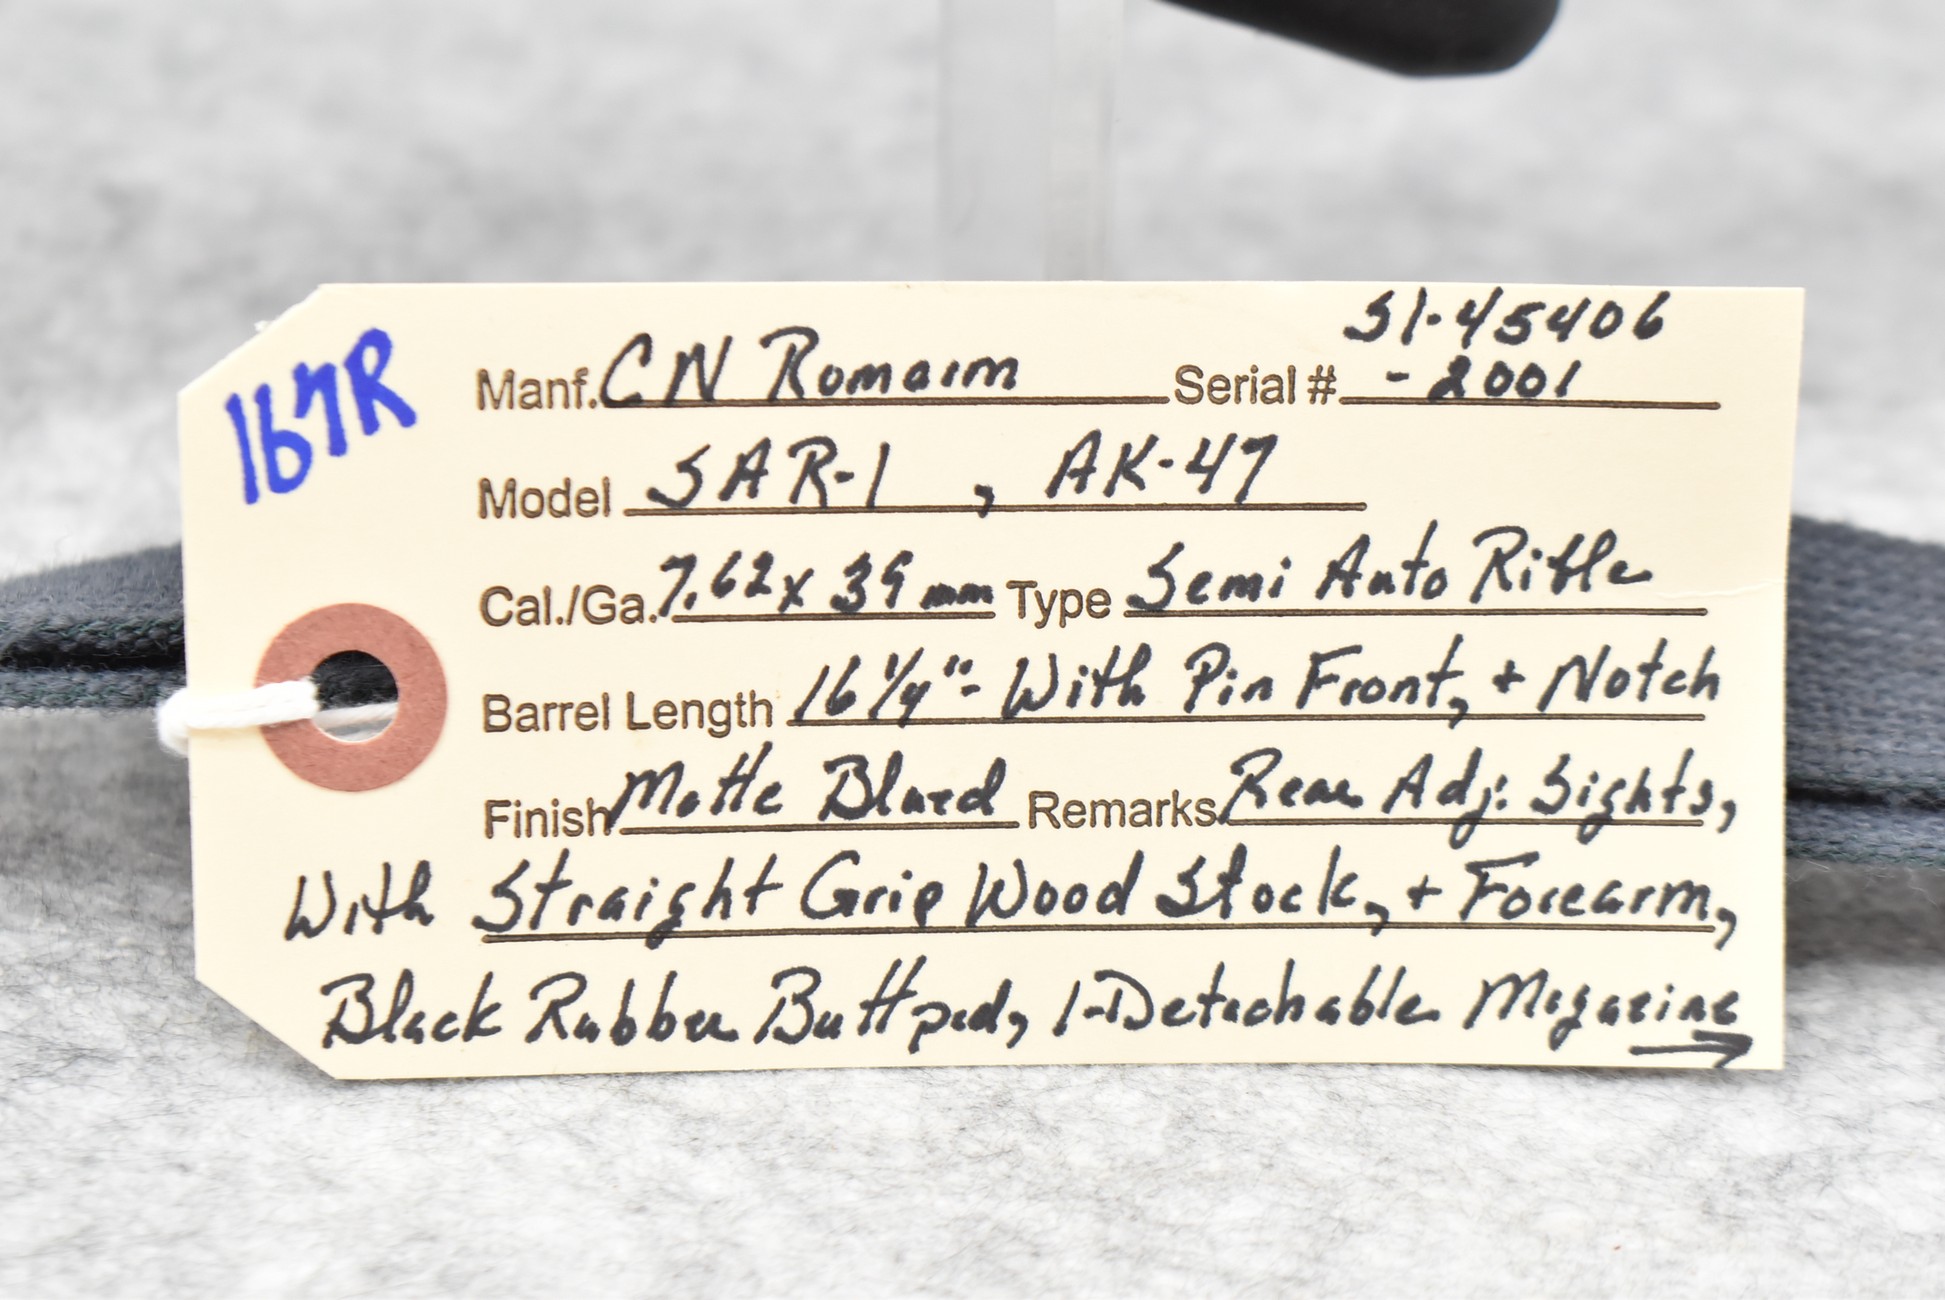 167R
S1-45406
Manf. CN Romarm Serial # -2001
Model SAR-1, AK-47
Cal./Ga. 7.62x39mm Type Semi Auto Rifle
Barrel Length 16 1/4"- With Pin Front, + Notch
Finish Matte Blued Remarks Rear Adj. Sights,
With Straight Grip Wood Stock, + Forearm,
Black Rubber Buttpad, 1-Detachable Magazine →